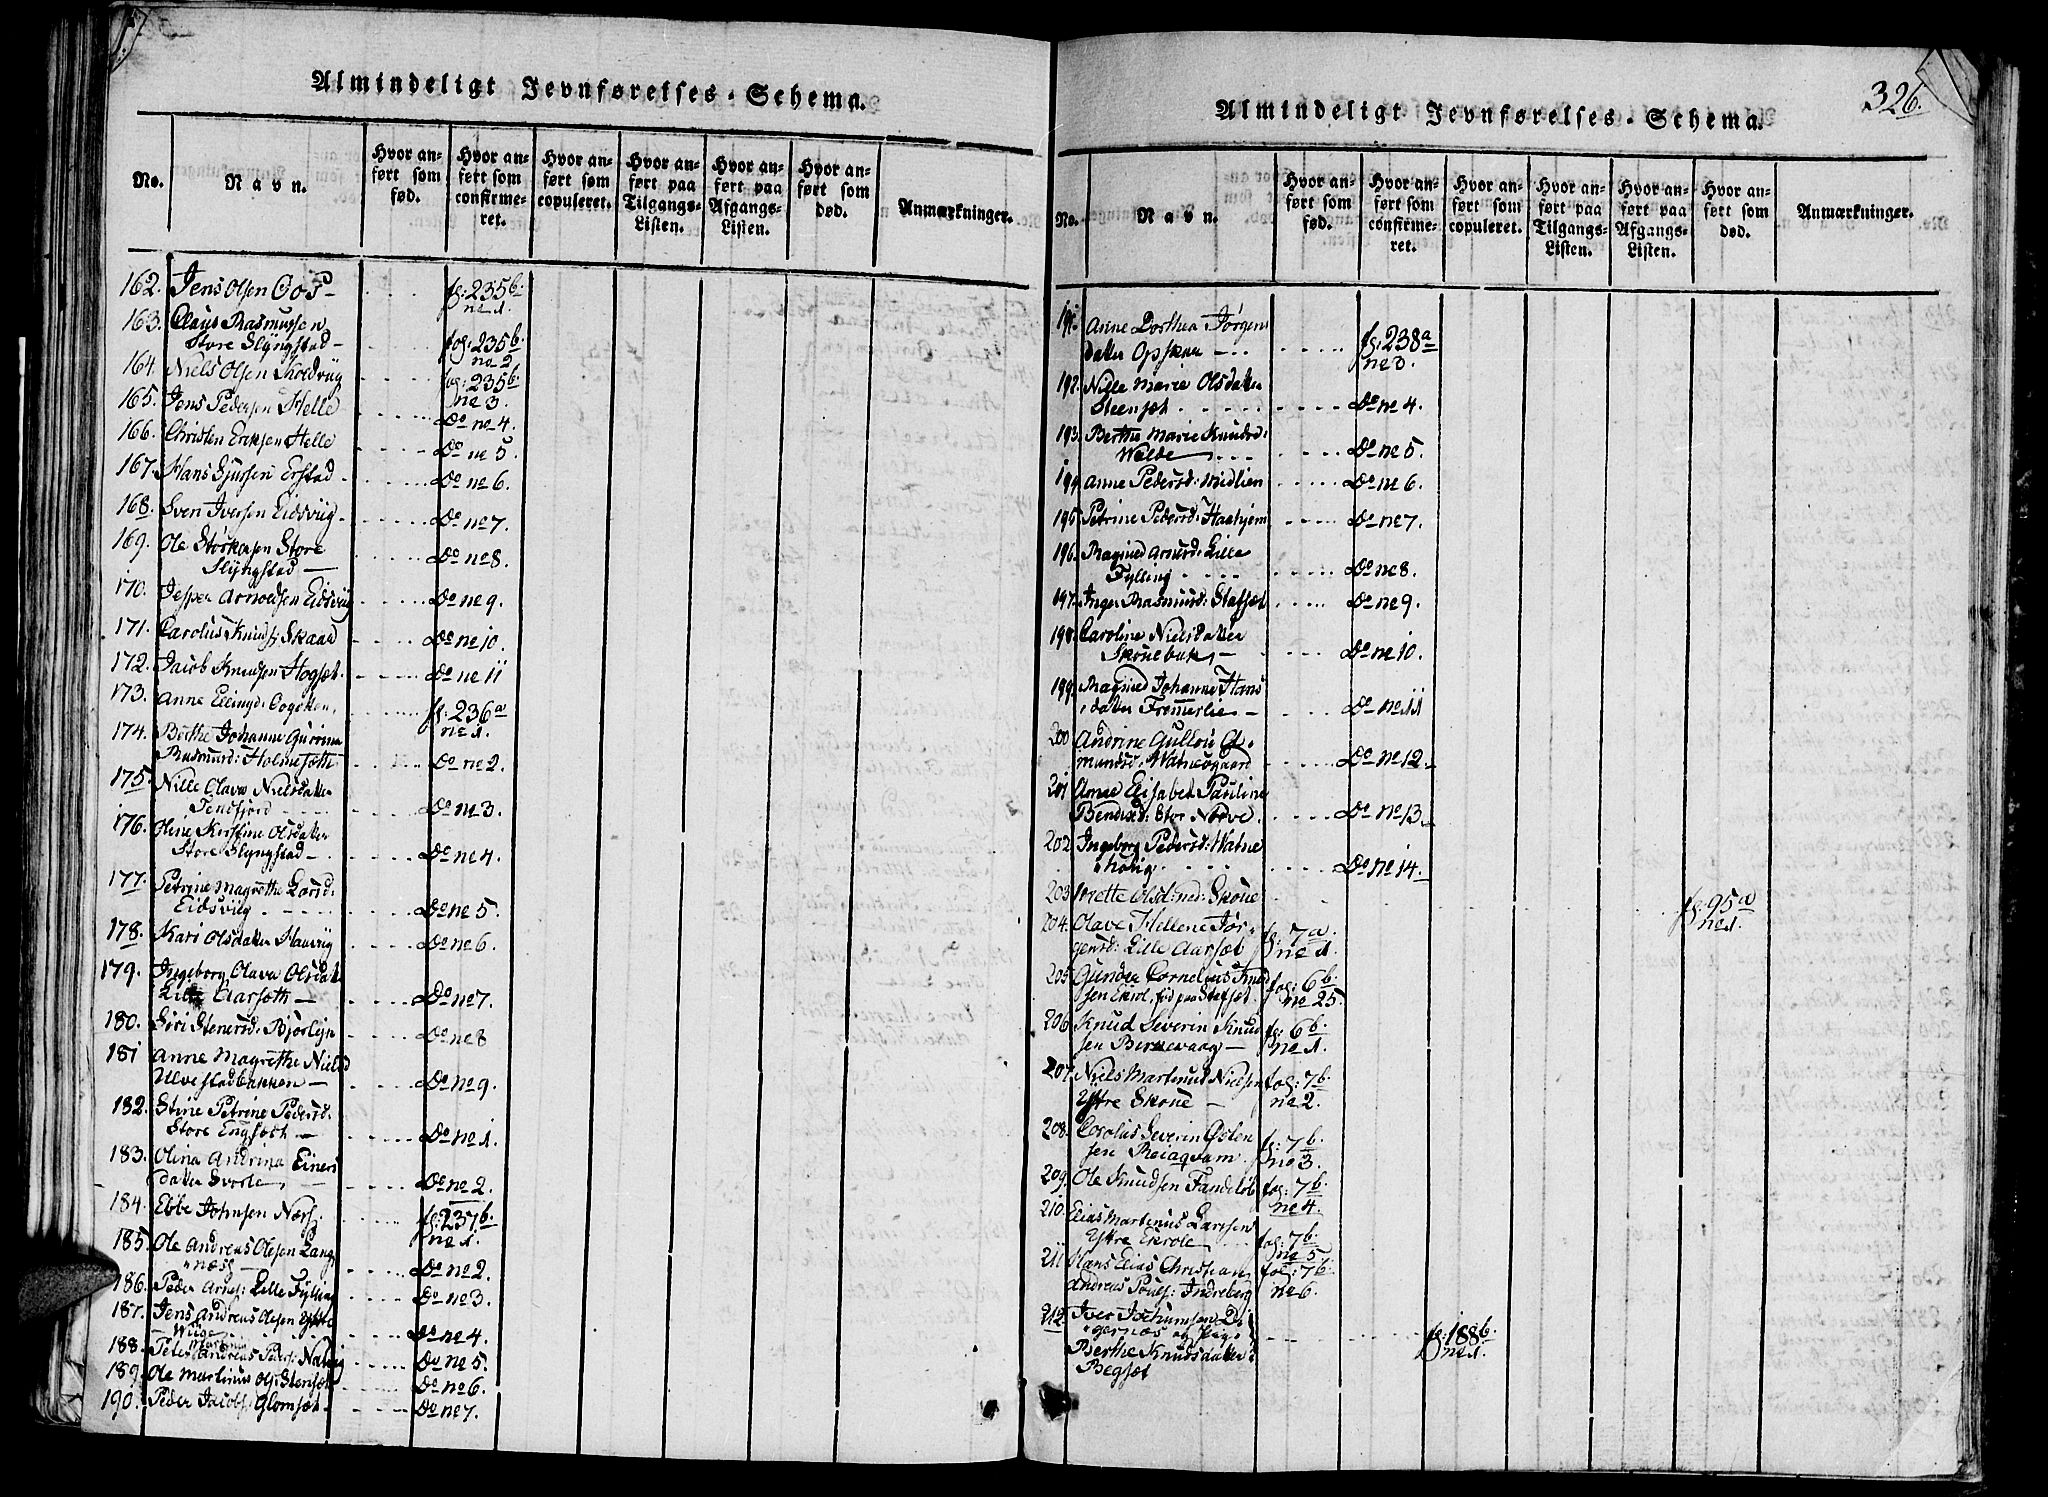 Almindeligt Jevnførelses-Schema.
No.
Navn.
Hvor an-
ført som
fød.
Hvor an-
ført som
confirme-
ret.
Hvor an-
ført som
copuleret.
Hvor an-
ført paa
Tilgangs-
Listen.
Hvor an-
ført paa
Afgangs-
Listen.
Hvor an-
ført som
død.
Anmærkninger.
162. Jens Olsen Gos- fg: 235b.
no 1.
163. Claus Rasmussen
Store Slyngstad- fog: 235b.
no 2
164. Niels Olsen Skodvig fog: 235b.
no 3.
165. Jens Pedersen Helle Do no 4.
166. Christen Eriksen Helle Do no 5.
167. Hans Sjursen Erstad Do no 6.
168. Sven Iversen Eidsviig Do no 7.
169. Ole Storkersen Store
Slyngstad Do no 8.
170. Jesper Arnoldsen Eidsviig Do no 9.
171. Carolus Knuds: Skaar Do no 10.
172. Jacob Knudsen Hogset Do no 11
173. Anne Ellingd: fg: 236a
no 1.
174. Berthe Johanne Gurina
Rasmusd: Holmesæth Do no 2.
175. Nille Olava Nielsdatter
Tenfjord Do no 3.
176. Oline Kirstine Olsdatter
Store Slyngstad Do no 4.
177. Petrine Magrethe Larsd:
Eidsviig Do no 5.
178. Kari Olsdatter Do no 6.
179. Ingeborg Olava Olsdat
Lille Aarsæth Do no 7.
180. Siri Stenersd: Bjørlyn Do no 8
181 Anne Magrethe Nielsd
Ulvestadbakken Do no 9.
182. Stine Petrine Pedersd.
Store Engsæth Do no 1.
183. Olina Andrina Einers
datter Svorte Do no 2.
184. Ebbe Johnsen fg: 237b.
no 1.
185. Ole Andreas Olesen Lang
næss Do no 2.
186. Peder Arnes: Lille Fylling Do no 3.
187. Jens Andreas Olesen Ystre
Wiige Do no 4.
188. Peter Andreas Peds: Do no 5.
189. Ole Martinus Ols: Stenset Do no 6.
190. Peder Jacobs: Glomset Do no 7.
326.
Almindeligt Jevnførelses-Schema.
No.
Navn.
Hvor an-
ført som
fød.
Hvor an-
ført som
confirme-
ret.
Hvor an-
ført som
copuleret.
Hvor an-
ført paa
Tilgangs-
Listen.
Hvor an-
ført paa
Afgangs-
Listen.
Hvor an-
ført som
død.
Anmærkninger.
191. Anne Dorthea Jørgens
datter Opskaa fg: 238a
no 3.
192. Nille Marie Olsdatter
Steensæt Do no 4.
193. Berthe Marie Knudsd:
Walde Do no 5.
194 Anne Pedersd: Midlien Do no 6.
195 Petrine Pedersd: Do no 7.
196. Ragnild Arnesd: Lille
Fylling Do no 8.
197. Inger Rasmusd: Stafset Do no 9.
198. Caroline Nielsdatter
Skouebak Do no 10.
199. Ragnild Johanne Hans
datter Frømerlie Do no 11
200 Andrine Gullou
mundsd: Watnegaard Do no 12.
201 Anne Elisabeth Pauline
Bendixd: Stor Nørve. Do no 13.
202. Ingeborg Pedersd: Watne
Do no 14.
203 Mette Olsd: ned: Skoue fg: 95a
no 1.
204. Olave Hellene Jør-
gensd: Lille Aarsæt fg: 7a.
no 1.
205 Cornelius Knud
sen Ekrol, fød paa Stafset. fog: 6b.
no 25.
206 Knud Severin Knud
sen fg: 6b.
no 1.
207. Niels Martinus Nielsen
Ystre Skoue fog: 7b.
no 2.
208. Carolus Severin Østen
sen fg: 7b.
no 3.
209. Ole Knudsen fog: 7b.
no 4.
210. Elias Martinus Larssen
Ystre Ekrole fog: 7b.
no 5
211 Hans Elias Christian
Andreas Pouls: Indreberg fol: 7b.
no 6.
212 Iver
og Pige
Berthe Knudsdatter
Begset fg: 188b.
no 1.